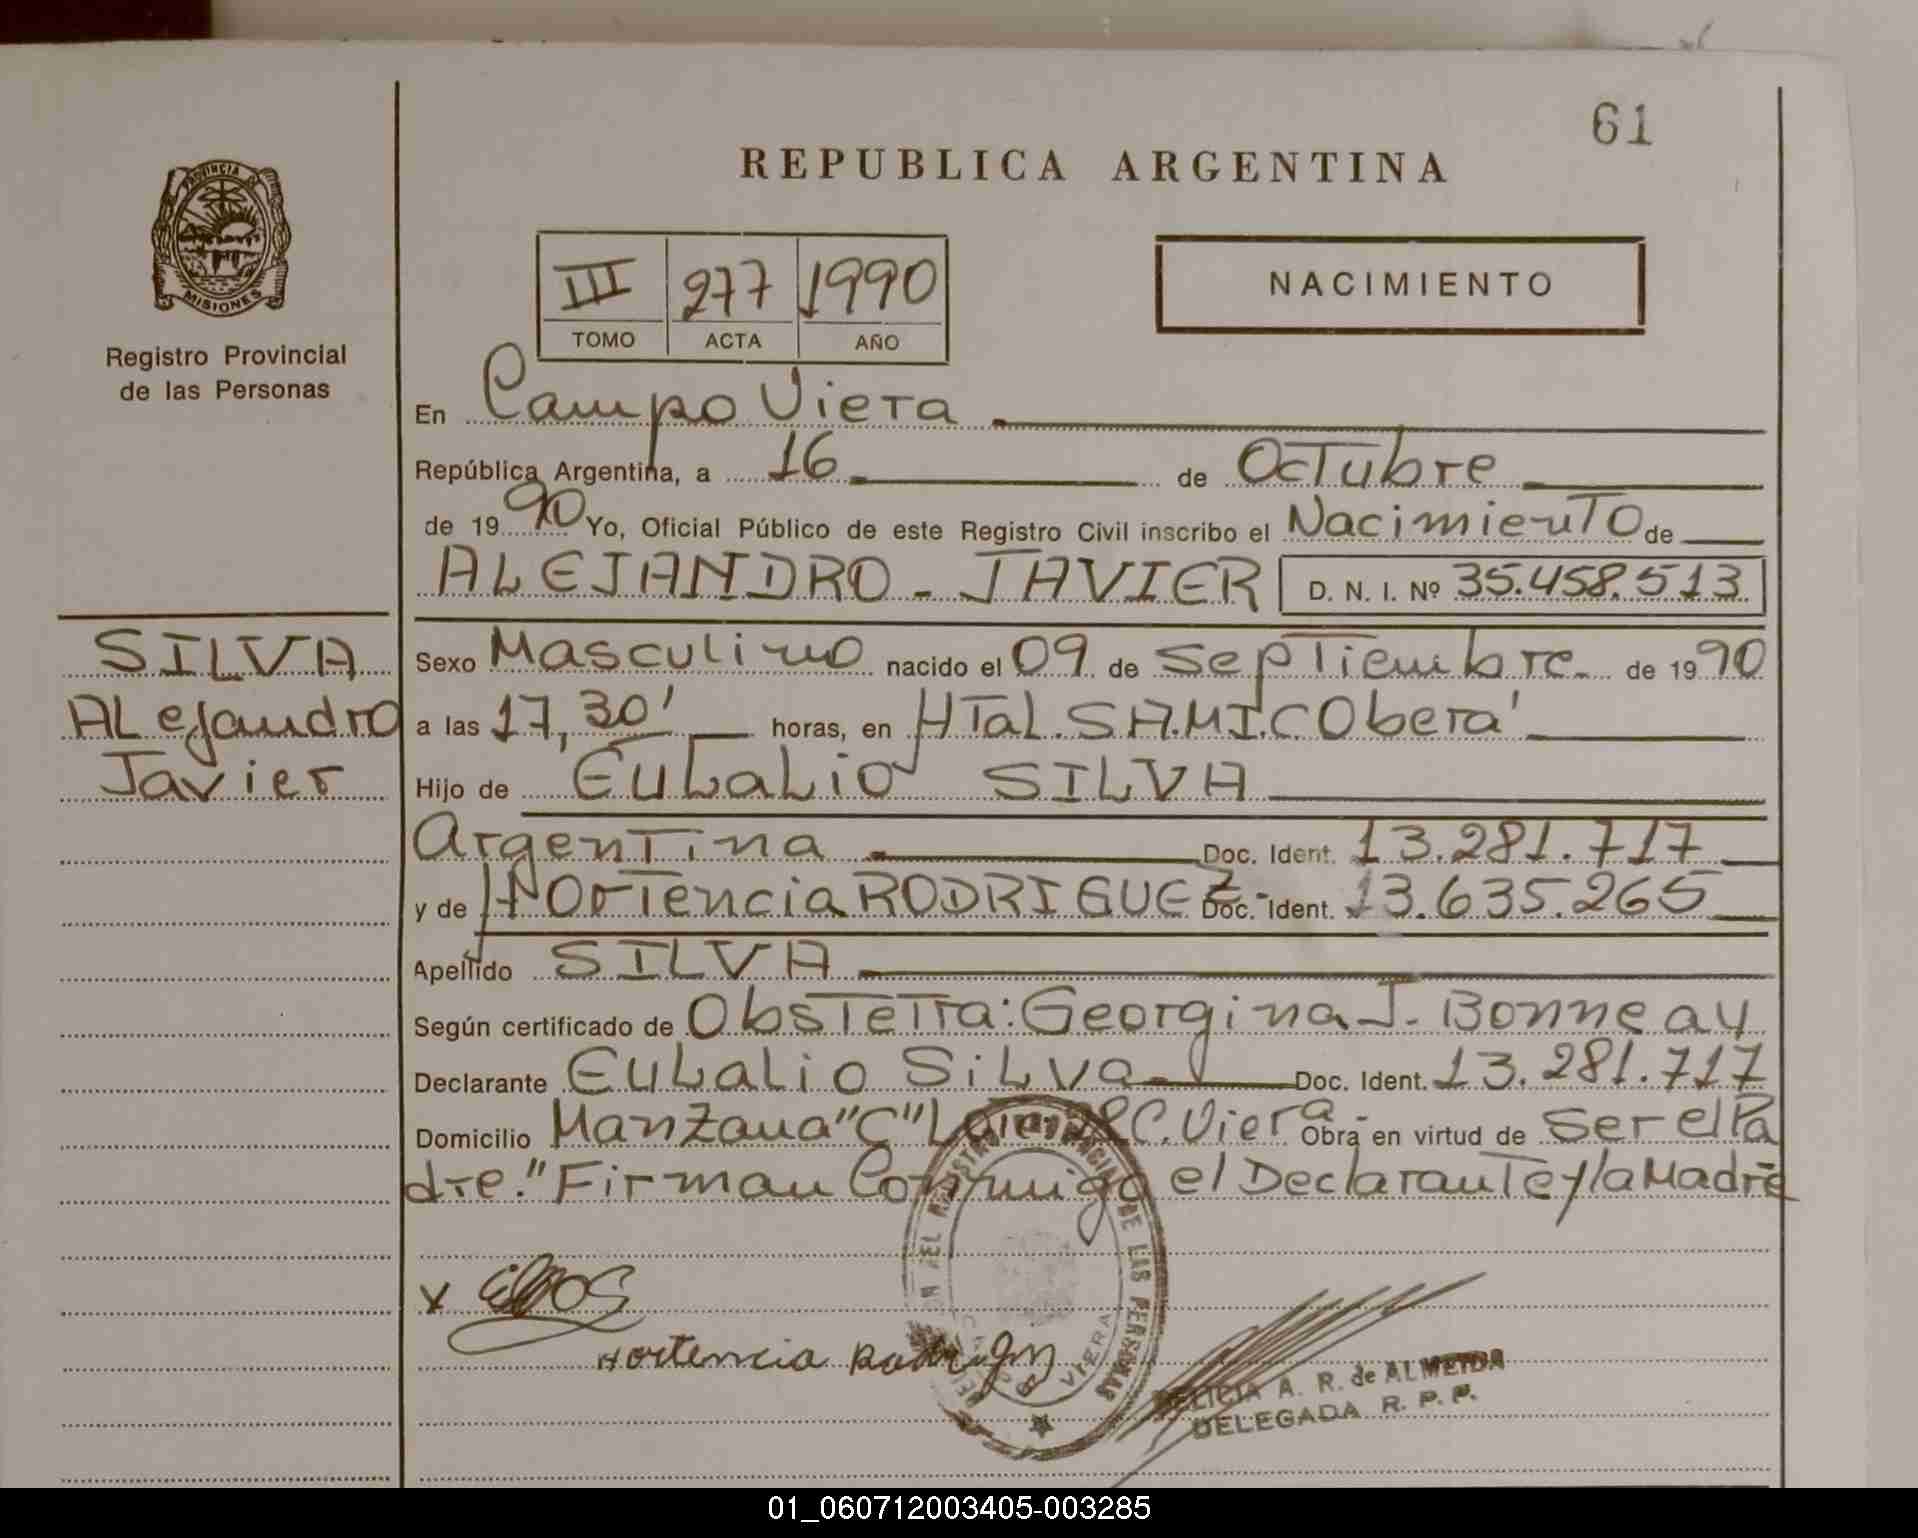 61
REPUBLICA ARGENTINA
PROVINCIA DE
MISIONES
Registro Provincial
de las Personas
III 277 1990
TOMO ACTA AÑO
NACIMIENTO
En Campo Viera
República Argentina, a 16 de Octubre
de 1990 Yo, Oficial Público de este Registro Civil inscribo el Nacimiento de
ALEJANDRO - JAVIER D. N. I. Nº 35.458.513
SILVA
Alejandro
Javier
Sexo Masculino nacido el 09 de septiembre de 1990
a las 17,30' horas, en HTal. S.A.M.I.C Obera'
Hijo de EULaLio SILVA
Argentina Doc. Ident. 13.281.717
y de Hortencia RODRIGUEZ- Doc. Ident. 13.635.265
Apellido SILVA
Según certificado de Obstetra: Georgina J. Bonneau
Declarante EULalio Silva Doc. Ident. 13.281.717
Domicilio Manzana "C" C. Viera - Obra en virtud de ser el Pa
dre." Firman Conmigo el Declarante y la Madre
x
Hortencia
DE LAS PERSONAS
VIERA
FELICIA A. R. de ALMEIDA
DELEGADA R. P. P.
01_060712003405-003285